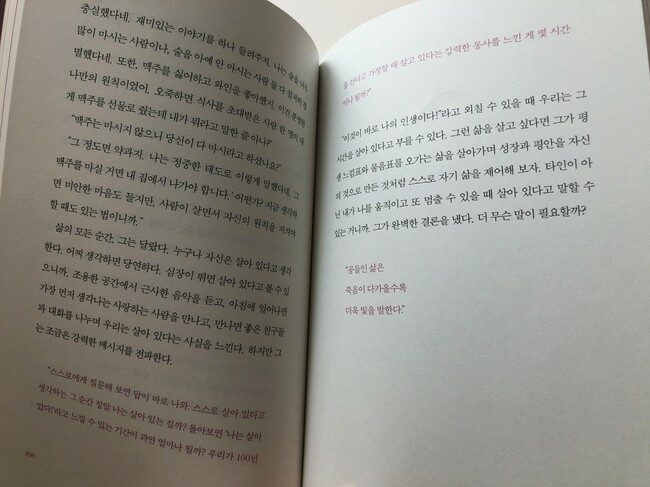 충실했다네. 재미있는 이야기를 하나 들려주지. 나는 술을 너무
많이 마시는 사람이나, 술을 아예 안 마시는 사람 둘 다
멸했다네. 또한, 맥주를 싫어하고 와인을 좋아했지. 이건 분명한
나만의 원칙이었어. 오죽하면 식사를 초대받은 사람 한 명이 내
게 맥주를 선물로 줬는데 내가 뭐라고 말한 줄 아나?"
"맥주는 마시지 않으니 당신이 다 마시라고 하셨나요?"
"그 정도면 약과지. 나는 정중한 태도로 이렇게 말했다네. '그
맥주를 마실 거면 내 집에서 나가야 합니다.' 어떤가? 지금 생각하
면 미안한 마음도 들지만, 사람이 살면서 자신의 원칙을 지켜야
할 때도 있는 법이니까."
삶의 모든 순간, 그는 달랐다. 누구나 자신은 살아 있다고 생각
한다. 어찌 생각하면 당연하다. 심장이 뛰면 살아 있다고 볼 수 있
으니까. 조용한 공간에서 근사한 음악을 듣고, 아침에 일어나면
가장 먼저 생각나는 사랑하는 사람을 만나고, 만나면 좋은 친구들
과 대화를 나누며 우리는 살아 있다는 사실을 느낀다. 하지만 그
는 조금은 강력한 메시지를 전파한다.
"스스로에게 질문해 보면 답이 바로 나와. 스스로 살아 있다고
생각하는 그 순간 정말 나는 살아 있는 걸까? 돌아보면 '나는 살아
있다!'라고 느낄 수 있는 기간이 과연 얼마나 될까? 우리가 100년
098
을 산다고 가정할 때 살고 있다는 강력한 동사를 느낀 게 몇 시간
이나 될까?"
"이것이 바로 나의 인생이다!"라고 외칠 수 있을 때 우리는 그
시간을 살아 있다고 부를 수 있다. 그런 삶을 살고 싶다면 그가 평
생 느낌표와 물음표를 오가는 삶을 살아가며 성장과 평안을 자신
의 것으로 만든 것처럼 스스로 자기 삶을 제어해 보자. 타인이 아
닌 내가 나를 움직이고 또 멈출 수 있을 때 살아 있다고 말할 수
있는 거니까. 그가 완벽한 결론을 냈다. 더 무슨 말이 필요할까?
"공들인 삶은
죽음이 다가올수록
더욱 빛을 발한다."